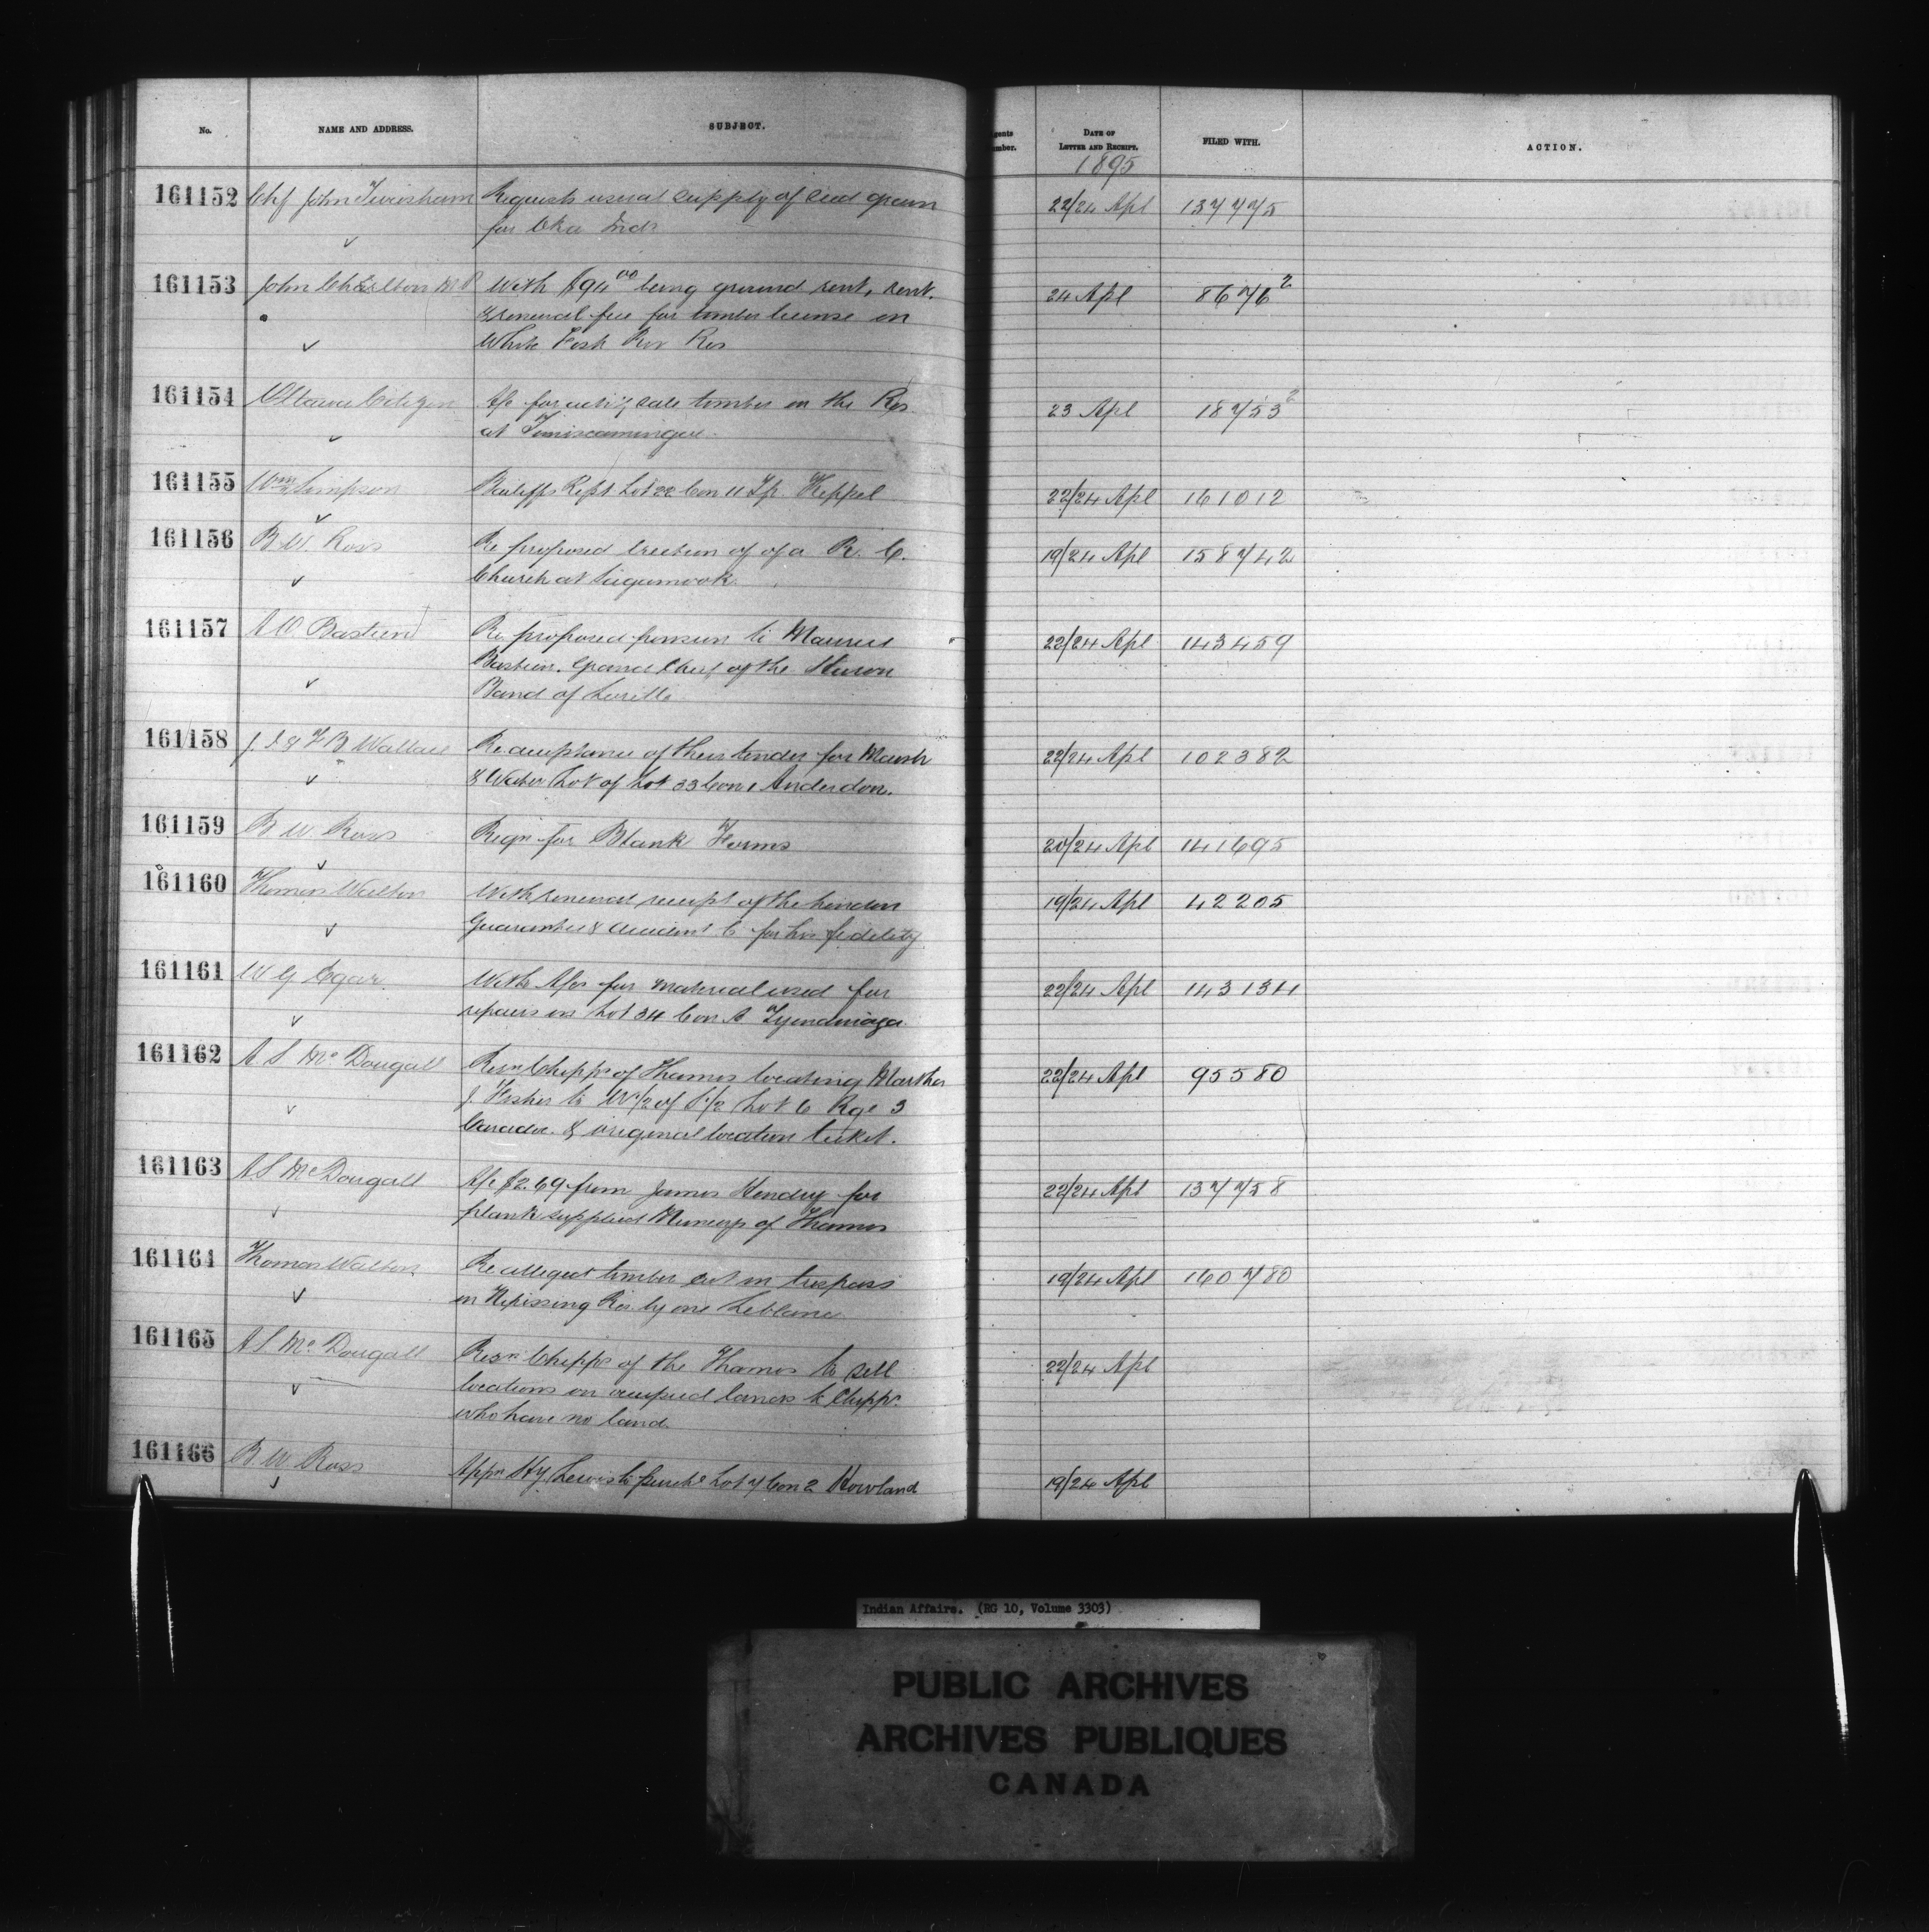 No.
NAME AND ADDRESS.
SUBJECT.
Agents Number.
DATE OF LETTER AND RECEIPT.
FILED WITH.
ACTION.
1895
161152 Chf John Tiwisham Requests usual supply of seed grain 22/24 Apl 137775
for Oka Inds
161153 John Charlton M P With $94 00 being ground rent, rent. 24 Apl 8676 2
& renewal fee for timber license on
White Fish Riv Res
161154 Ottawa Citizen A/c for advtg sale timber on the Res 23 Apl 18753 2
at Temiscamingue
161155 Wm Simpson Bailiffs Rept Lot 22 Con 11 Tp Keppel 22/24 Apl 161012
161156 B W. Ross Re proposed erection of of a R. C. 19/24 Apl 158742
Church at Sagamook
161157 A O Bastien Re proposed pension to Maurice 22/24 Apl 143459
Bastien. Grand Chief of the Huron
Band of Lorette
161158 J. S & F B Wallace Re acceptance of their tender for Marsh 22/24 Apl 102382
& Water Lot of Lot 33 Con 1 Anderdon.
161159 B W. Ross Reqn for Blank Forms 20/24 Apl 141695
161160 Thomas Walton With renewal receipt of the London 19/24 Apl 42205
Guarantee & Accident C for his fidelity
161161 W G Egar With A/cs for material used for 22/24 Apl 143134
repairs on Lot 34 Con A Tyendinaga
161162 A. S. McDougall Resn Chipps of Thames locating Martha 22/24 Apl 95580
J. Fisher to W 1/2 of S 1/2 Lot 6 Rge 3
Caradoc. & original location ticket.
161163 A S McDougall A/c $2.69 from James Hendry for 22/24 Apl 137758
plank supplied Munceys of Thames
161164 Thomas Walton Re alleged timber cut in trespass 19/24 Apl 160780
on Nipissing Res. by one Leblanc
161165 A S McDougall Resn Chipps of the Thames to sell 22/24 Apl
locations on occupied lands to Chipps
who have no land.
161166 B W Ross Appn Hy Lewis to purche Lot 7 Con 2 Howland 19/24 Apl
Indian Affairs. (RG 10, Volume 3303)
PUBLIC ARCHIVES
ARCHIVES PUBLIQUES
CANADA